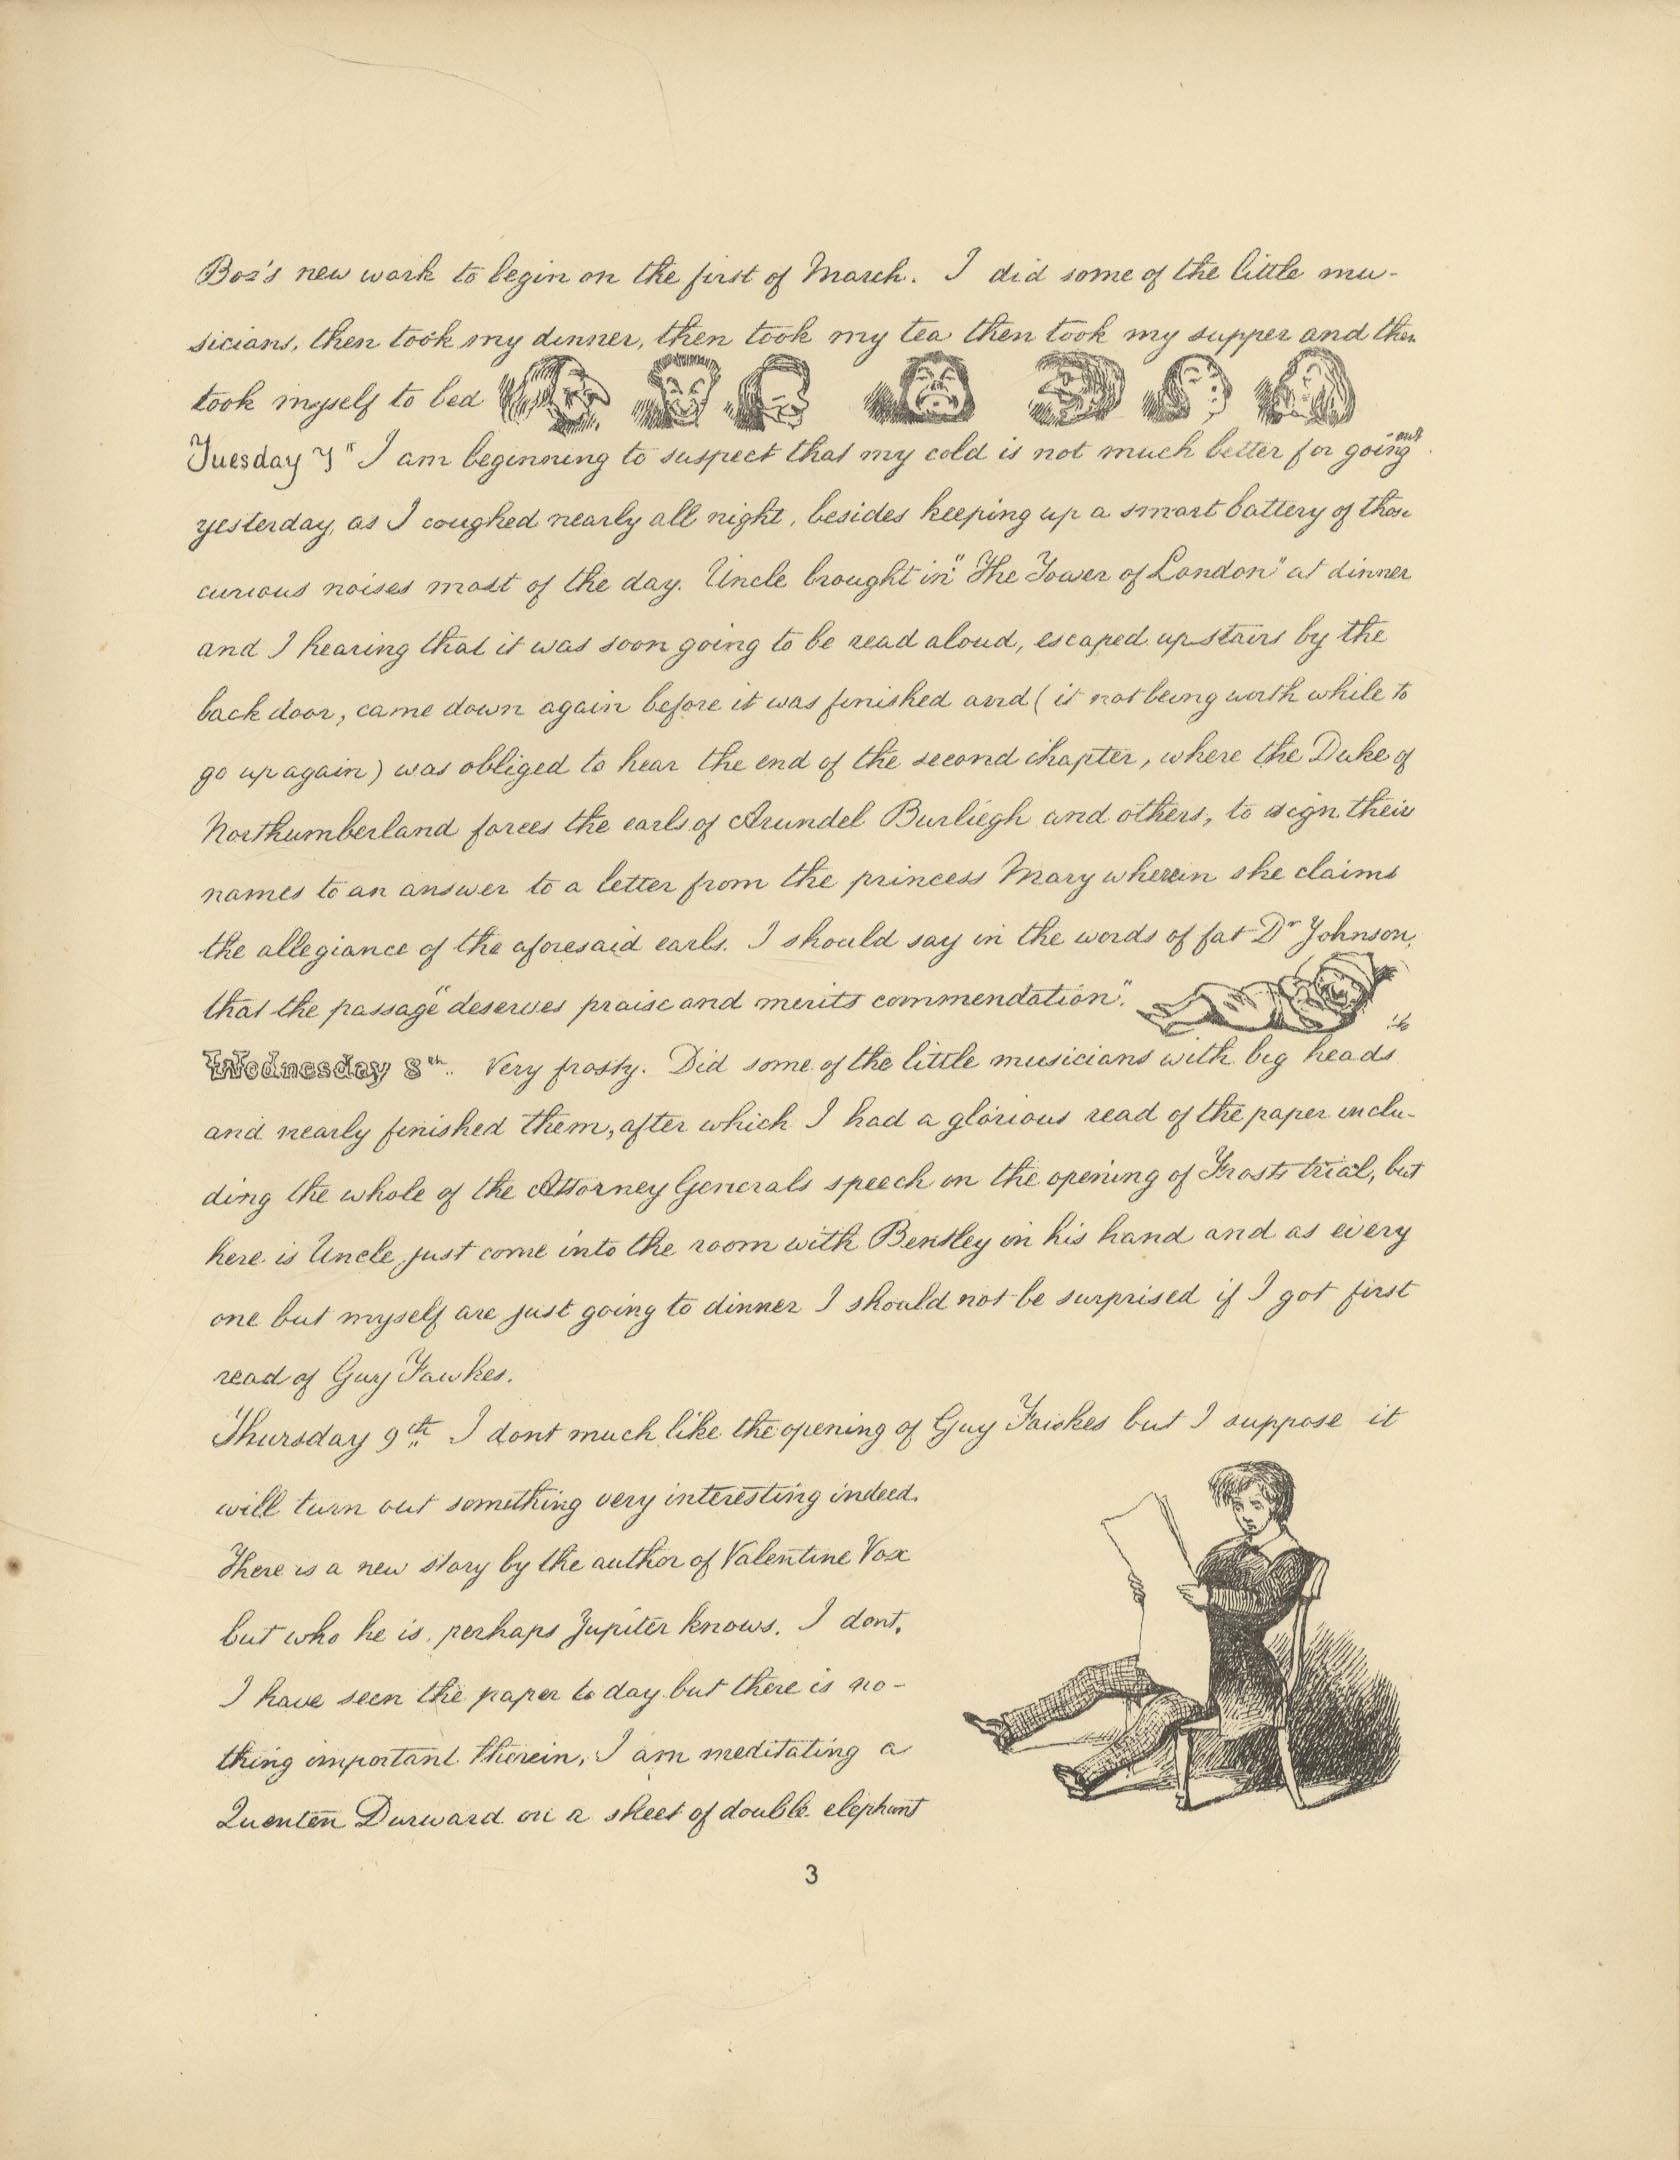 Boz's new work to begin on the first of March. I did some of the little mu-
sicians, then took my dinner, then took my tea then took my supper and then
took myself to bed
Tuesday 7" I am beginning to suspect that my cold is not much better for going out
yesterday, as I coughed nearly all night, besides keeping up a smart battery of those
curious noises most of the day. Uncle brought in "The Tower of London" at dinner
and I hearing that it was soon going to be read aloud, escaped up stairs by the
back door, came down again before it was finished and (it not being worth while to
go up again) was obliged to hear the end of the second chapter, where the Duke of
Northumberland forces the earls of Arundel Burliegh and others, to sign their
names to an answer to a letter from the princess Mary wherein she claims
the allegiance of the aforesaid earls. I should say in the words of fat Dr Johnson,
that the passage "deserves praise and merits commendation".
Wednesday 8th. Very frosty. Did some of the little musicians with big heads
and nearly finished them, after which I had a glorious read of the paper inclu-
ding the whole of the Attorney Generals speech on the opening of Frosts trial, but
here is Uncle just come into the room with Bentley in his hand and as every
one but myself are just going to dinner I should not be surprised if I got first
read of Guy Fawkes.
Thursday 9th I dont much like the opening of Guy Fawkes but I suppose it
will turn out something very interesting indeed.
There is a new story by the author of Valentine Vox
but who he is, perhaps Jupiter knows. I dont.
I have seen the paper to day but there is no-
thing important therein, I am meditating a
Quenten Durward on a sheet of double elephant
3